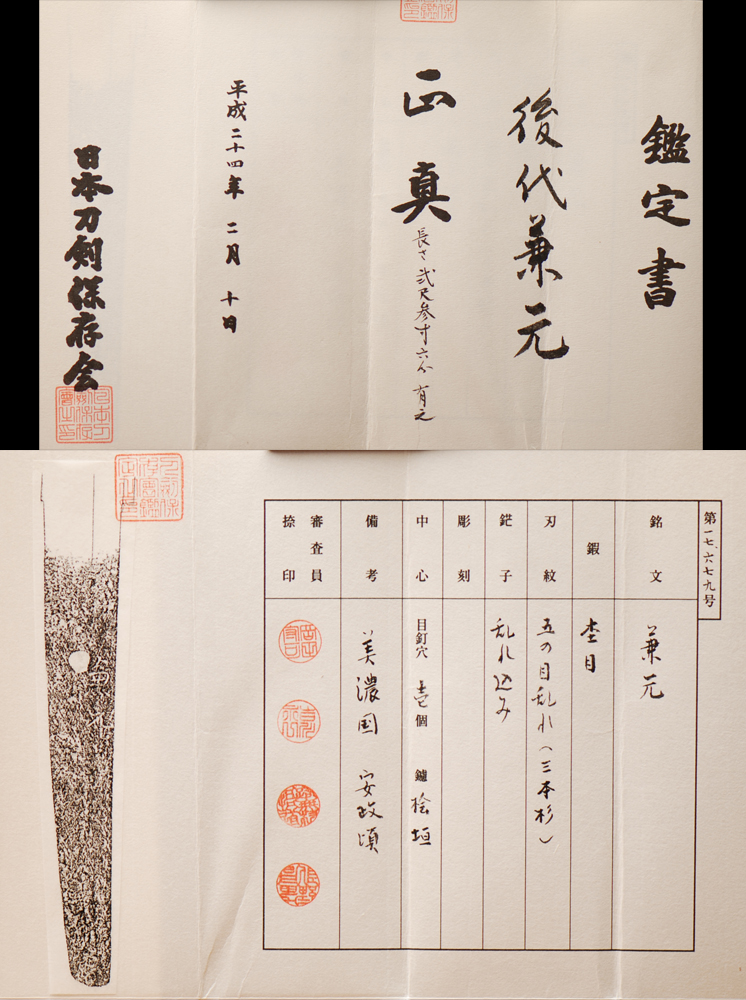 鑑定書
後代兼元
正真
長さ弐尺参寸六分有之
平成二十四年二月十日
日本刀剣保存会
第一七、六七九号
銘文
兼元
鍜
杢目
刃紋
五の目乱れ（三本杉）
鋩子
乱れ込み
彫刻
中心
目釘穴 壱個 鑢 桧垣
備考
美濃国 安政頃
審査員
捺印
兼元